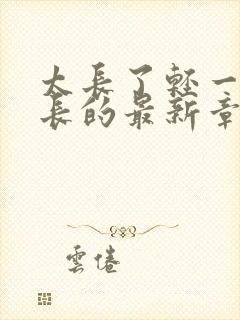 太長了輕一
長的最新章
雲倦